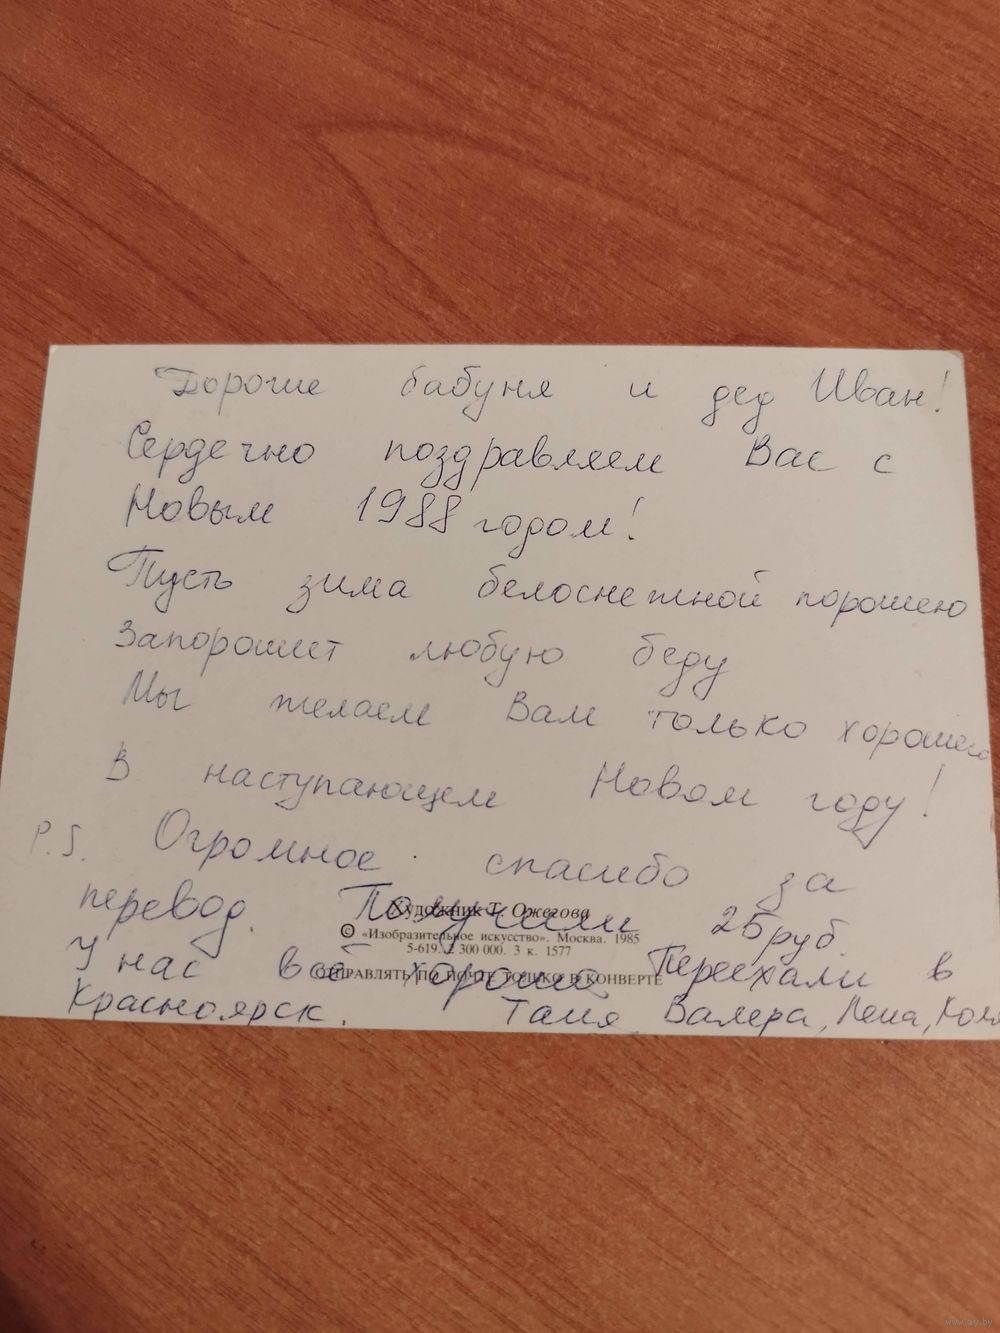 Дорогие бабуня и дед Иван!
Сердечно поздравляем Вас с
Новым 1988 годом!
Пусть зима белоснежной порошею
Запорошит любую беду
Мы желаем Вам только хорошего
В наступающем Новом году!
P.S. Огромное спасибо за
перевод. Получили 25 руб
Художник Т. Ожегова
© «Изобразительное искусство». Москва. 1985
5-619. 2 300 000. 3 к. 1577
У нас всё хорошо Переехали в
ОТПРАВЛЯТЬ ПО ПОЧТЕ ТОЛЬКО В КОНВЕРТЕ
Красноярск. Таня, Валера, Лена, Коля
www.ay.by